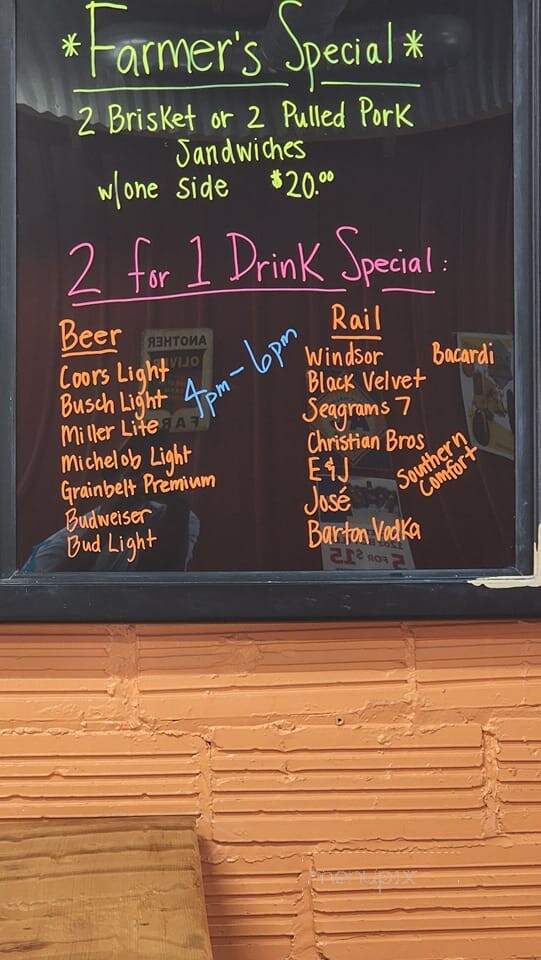 *Farmer's Special*
2 Brisket or 2 Pulled Pork
Sandwiches
w/one side $20.00
2 for 1 Drink Special:
4pm - 6pm
Beer
Coors Light
Busch Light
Miller Lite
Michelob Light
Grainbelt Premium
Budweiser
Bud Light
Rail
Windsor
Black Velvet
Seagrams 7
Christian Bros
E&J
José
Barton Vodka
Bacardi
Southern
Comfort
ANOTHER
5 FOR $15
menupix